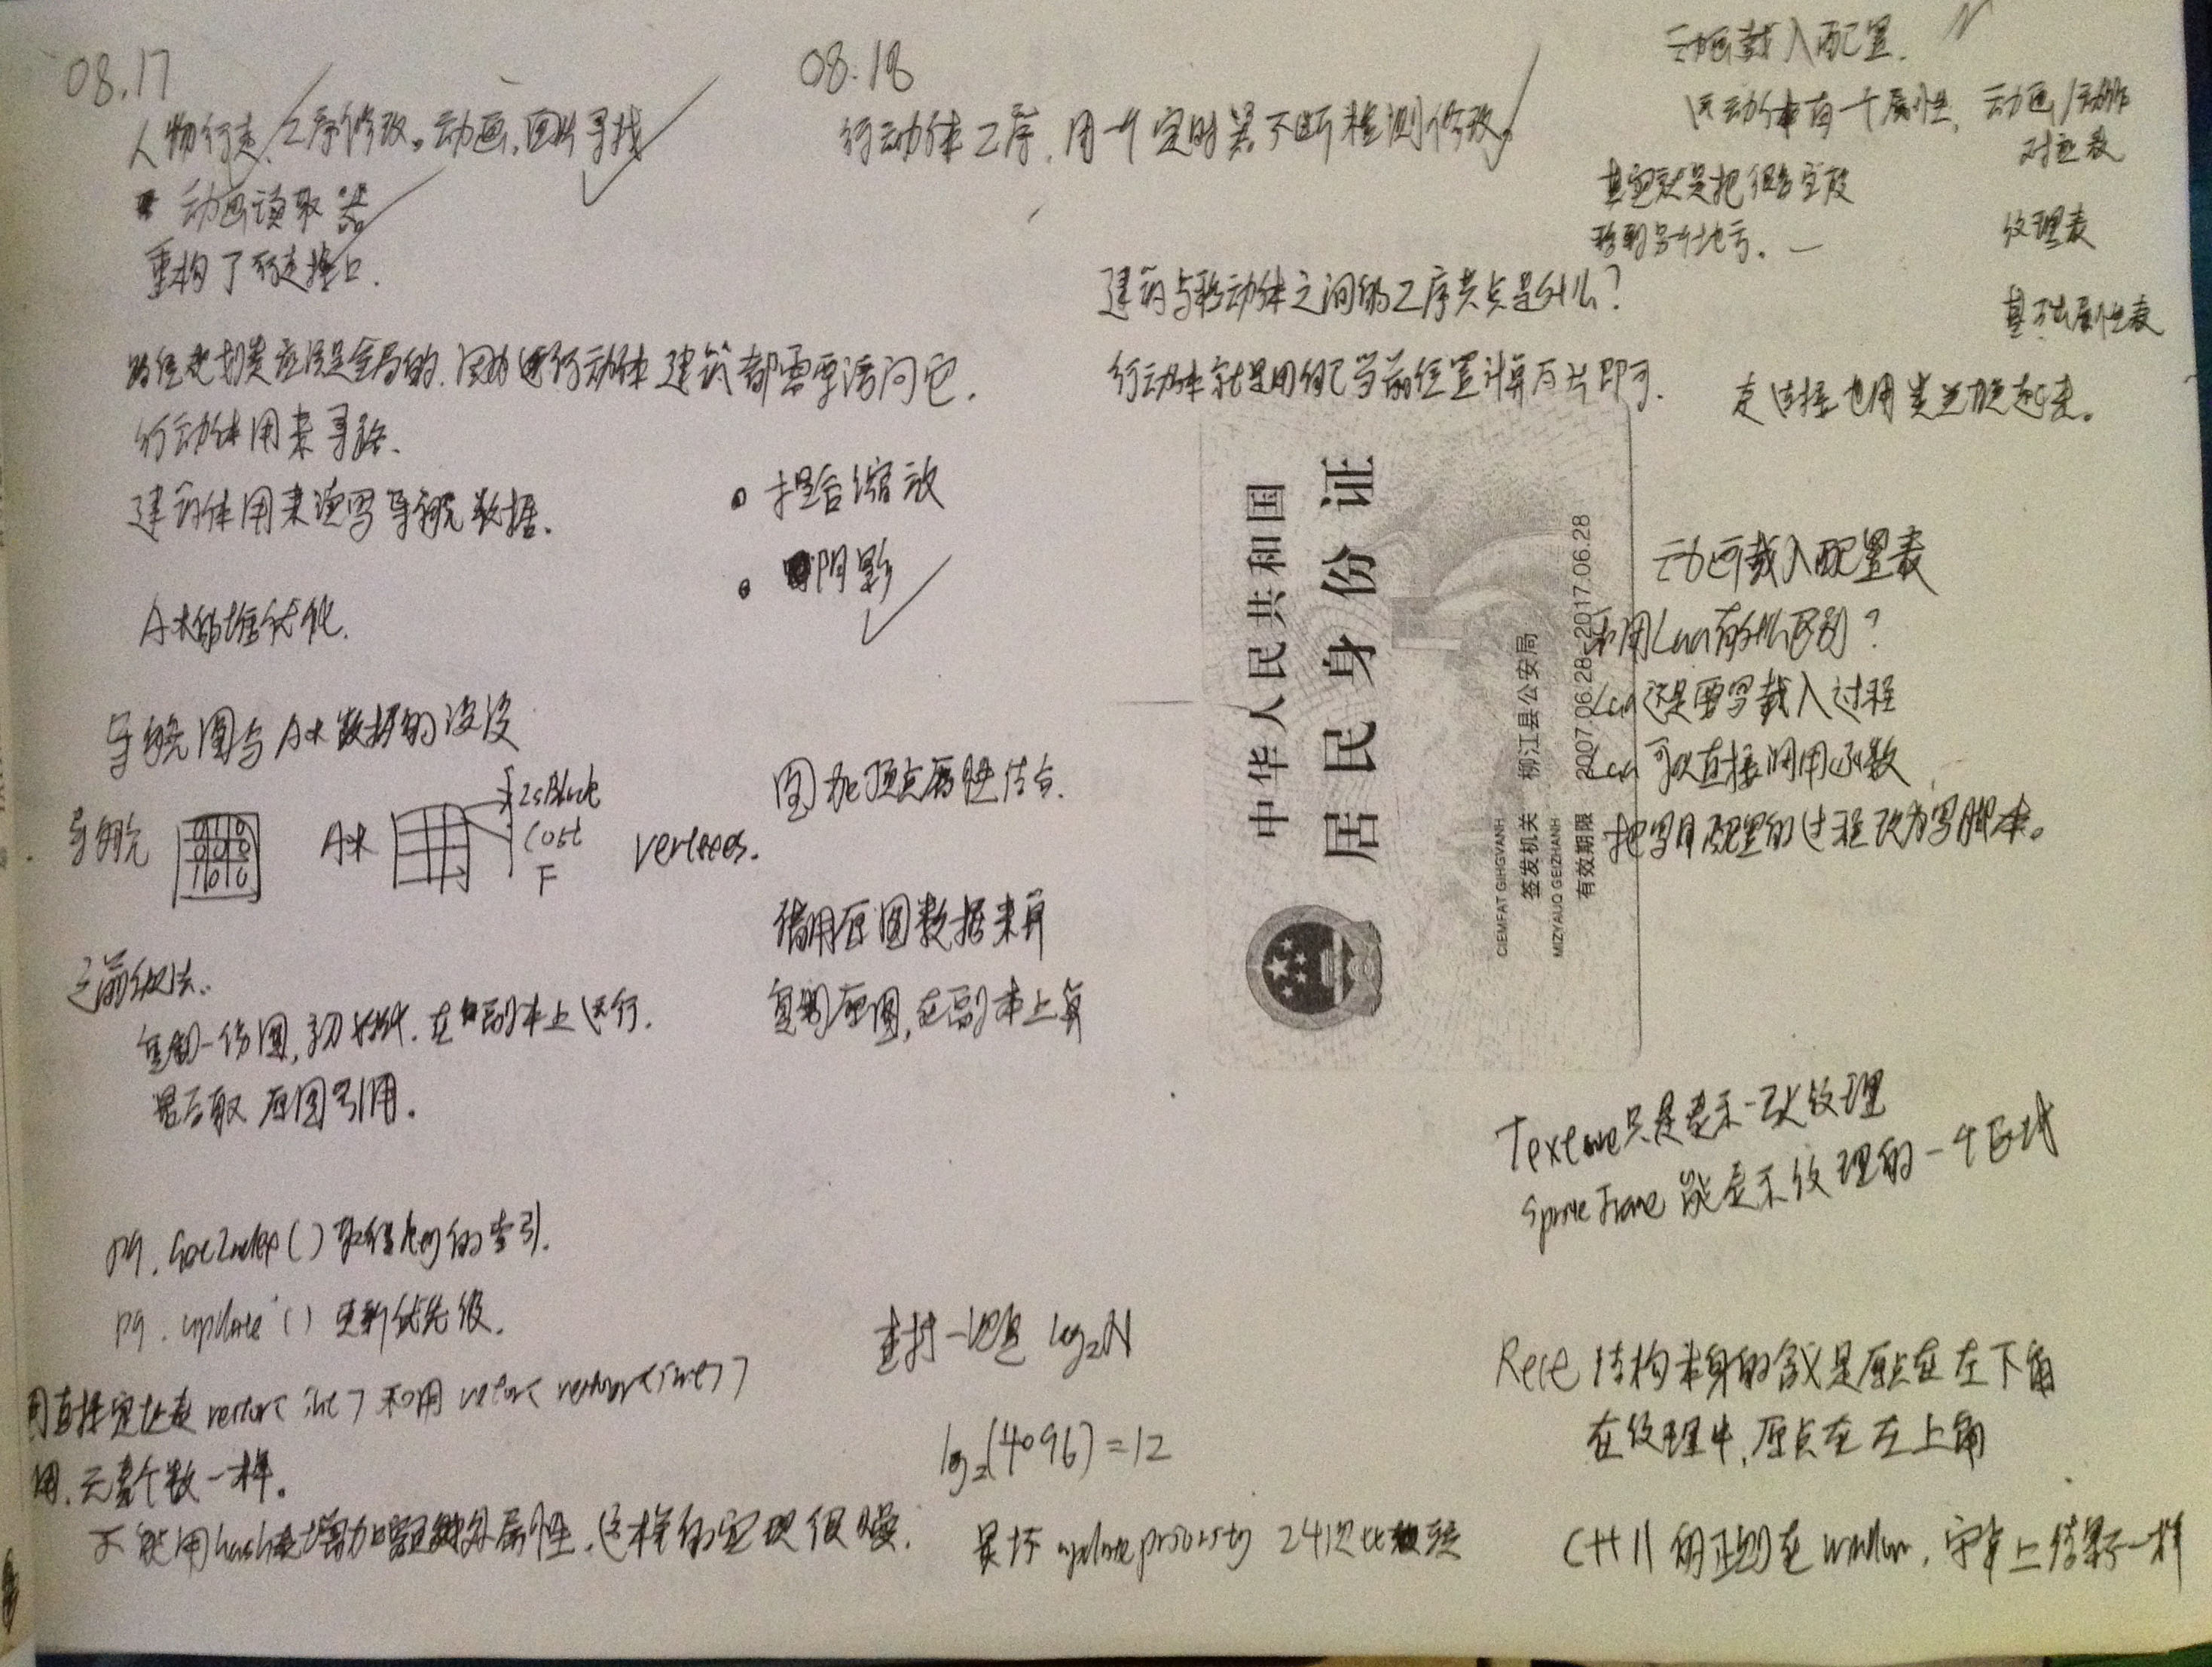 08.17
人物行走, Z序修改。动画,图片寻找
动画读取器
重构了行走接口.
路径规划类应该是全局的,因为行动体 建筑都需要访问它.
行动体用来寻路.
建筑体用来读写导航数据.
A*的堆优化.
导航图与A*数据的
导航
A*
IsBlock
Cost
F
vertexes.
之前做法:
复制一份图,初始化.在副本上运行.
最后取 原图引用.
pq.GetIndex()取得key的索引.
pq.update()更新优先级.
用直接定址表vector<int>和用vector<vector<int>>
用,元素个数一样。
不能用hash表增加额外属性,这样的实现很慢.
08.18
行动体Z序,用一个定时器不断检测修改。
建筑与移动体之间的Z序共点是什么?
行动体就是用自己当前位置计算即可.
捏合缩放
阴影
图 加顶点属性
借用原图数据来算
复制原图,在副本上算
log₂N
log₂(4096)=12
最坏 update priority 24次比较
动画载入配置.
运动体有一个属性, 动画/动作
对应表
其实就是把
移到另外地方.
纹理表
基础属性表
中华人民共和国
居民身份证
CIEMFAT GIHGVANH
签发机关 柳江县公安局
MIZYAUQ GEIZHANH
有效期限 2007.06.28-2017.06.28
动画载入配置表
和用Lua有什么区别?
Lua还是要写载入过程
Lua可以直接调用函数
把写配置的过程改为写脚本。
Texture只是表示一张纹理
SpriteFrame能表示纹理的一个区域
Rect结构本身的含义是原点在左下角
在纹理中,原点在左上角
C++11的正则在window,安卓上结果不一样